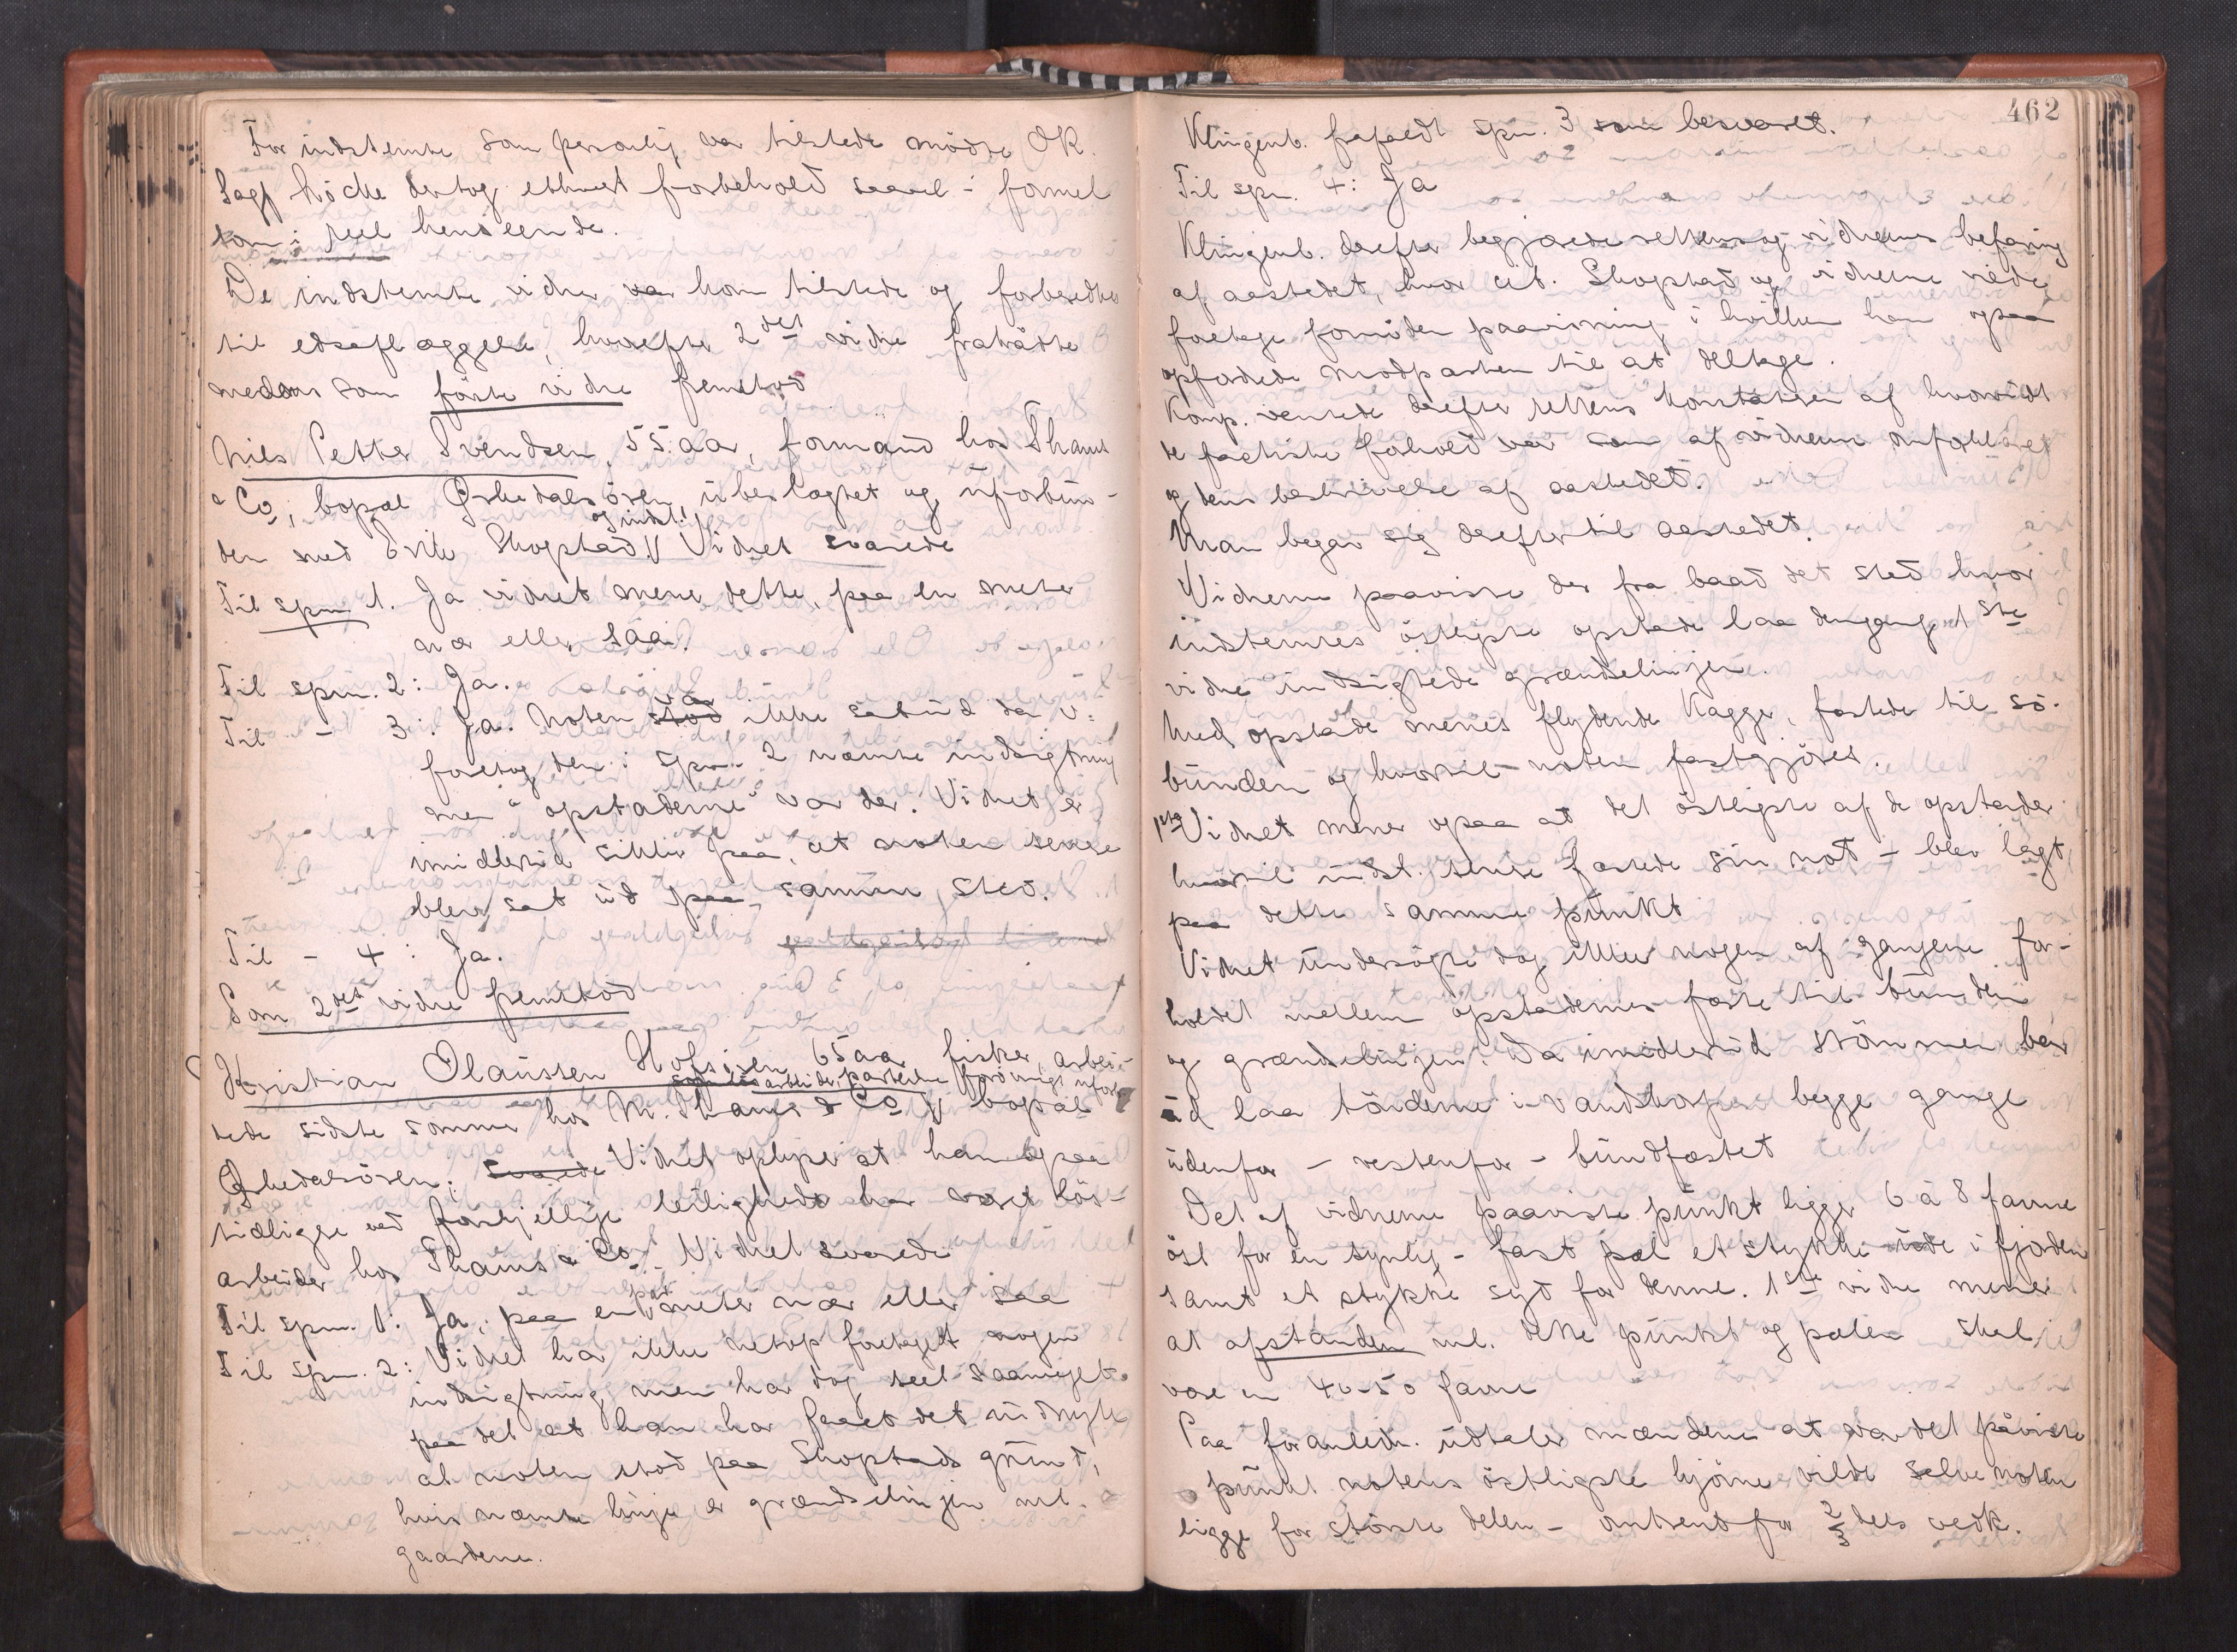 For indstemte som personlig var tilstede mødte OR.
Sagf. Höcke der tog ethvert forbehold saavel i formel
som i reel henseende.
De indstemte vidner var kom tilstede og forberedtes
til edsaflæggelse, hvorefter 2det vidne fratraadte
medens som förste vidne fremstod
Nils Petter Svendsen, 55 aar, formand hos Thams
& Co, bopæl Orkedalsören, uberygtet og uforbun-
den med Skogstad og indst. Vidnet svarede
Til spm 1. Ja vidnet mener dette, paa en meter
nær eller saa.
Til spm. 2: Ja.
Til - 3: Ja. Noten stod var ikke sat ud da v.
foretog den i spm. 2 nævnte indsigtning
men "opstaderne" var der. Vidnet er
imidlertid sikker paa, at noten senere
blev sat ud paa samme sted.
Til - 4: Ja.
Som 2det vidne fremstod
Kristian Olaussen Hofsien, 65 aar, fisker, arbei-
dede sidste sommer hos M. Thams & Co som lösarbeider, parterne forövrigt uforb. bopæl
Orkedalsören; svarede Vidnet oplyser at han ogsaa
tidligere ved forskjellige leiligheder har været lös-
arbeider hos Thams & Co. Vidnet svarede
Til spm. 1: Ja, paa en par meter nær eller saa
Til spm. 2: Vidnet har ikke netop foretaget nogen
indsigtning, men har dog seet saameget
paa det at han har faaet det indtryk
at noten stod paa Skogstads grund,
hvis nævnte linje er grændselinjen ml.
gaardene.
462
Klingenb. frafaldt spm. 3 som besvaret.
Til spm. 4: Ja
Klingenb. derefter begjærede rettens og vidnernes befaring
af aastedet, hvor cit. Skogstad og vidnerne vilde
foretage fornöden paavisning i hvilken han ogsaa
opfordrede modparten til at deltage.
Komp. ventede derefter rettens konstateren af hvorvidt
de factiske forhold var som af vidnerne anforklaret
og dens beskrivelse af aastedet.
Man begav sig derefter til aastedet.
Vidnerne paaviste der fra baad det sted hvor
indstemtes östligste opstade laa dengang 1ste
vidne indsigtede grændselinjen.
Med opstade menes flydende kagge, fæstede til sö-
bunden og hvortil noten fastgjöres.
1ste Vidnet mener ogsaa at det östligste af de opstader
hvortil indst. senere fæstede sin not - blev lagt
paa dette samme punkt
Vidnet undersögte dog ikke nogen af gangene for-
holdet mellem opstadernes fæste til bunden
og grændselinjen. Da imidlertid strömmen bar
ud laa tönderne i vandskorpen begge gange
udenfor - vestenfor - bundfæstet
Det af vidnerne paaviste punkt ligger 6 à 8 favne
öst for en synlig - fast pæl et stykke ude i fjorden
samt et stykke syd for denne. 1ste vidne mener
at afstanden ml. dette punkt og pælen skal
være en 40-50 favne
Paa foranledn. udtaler mændene at var det påviste
punkt notens östligste hjörne vilde selve noten
ligge for störste delen - omtrent for 2/3 dels vedk.